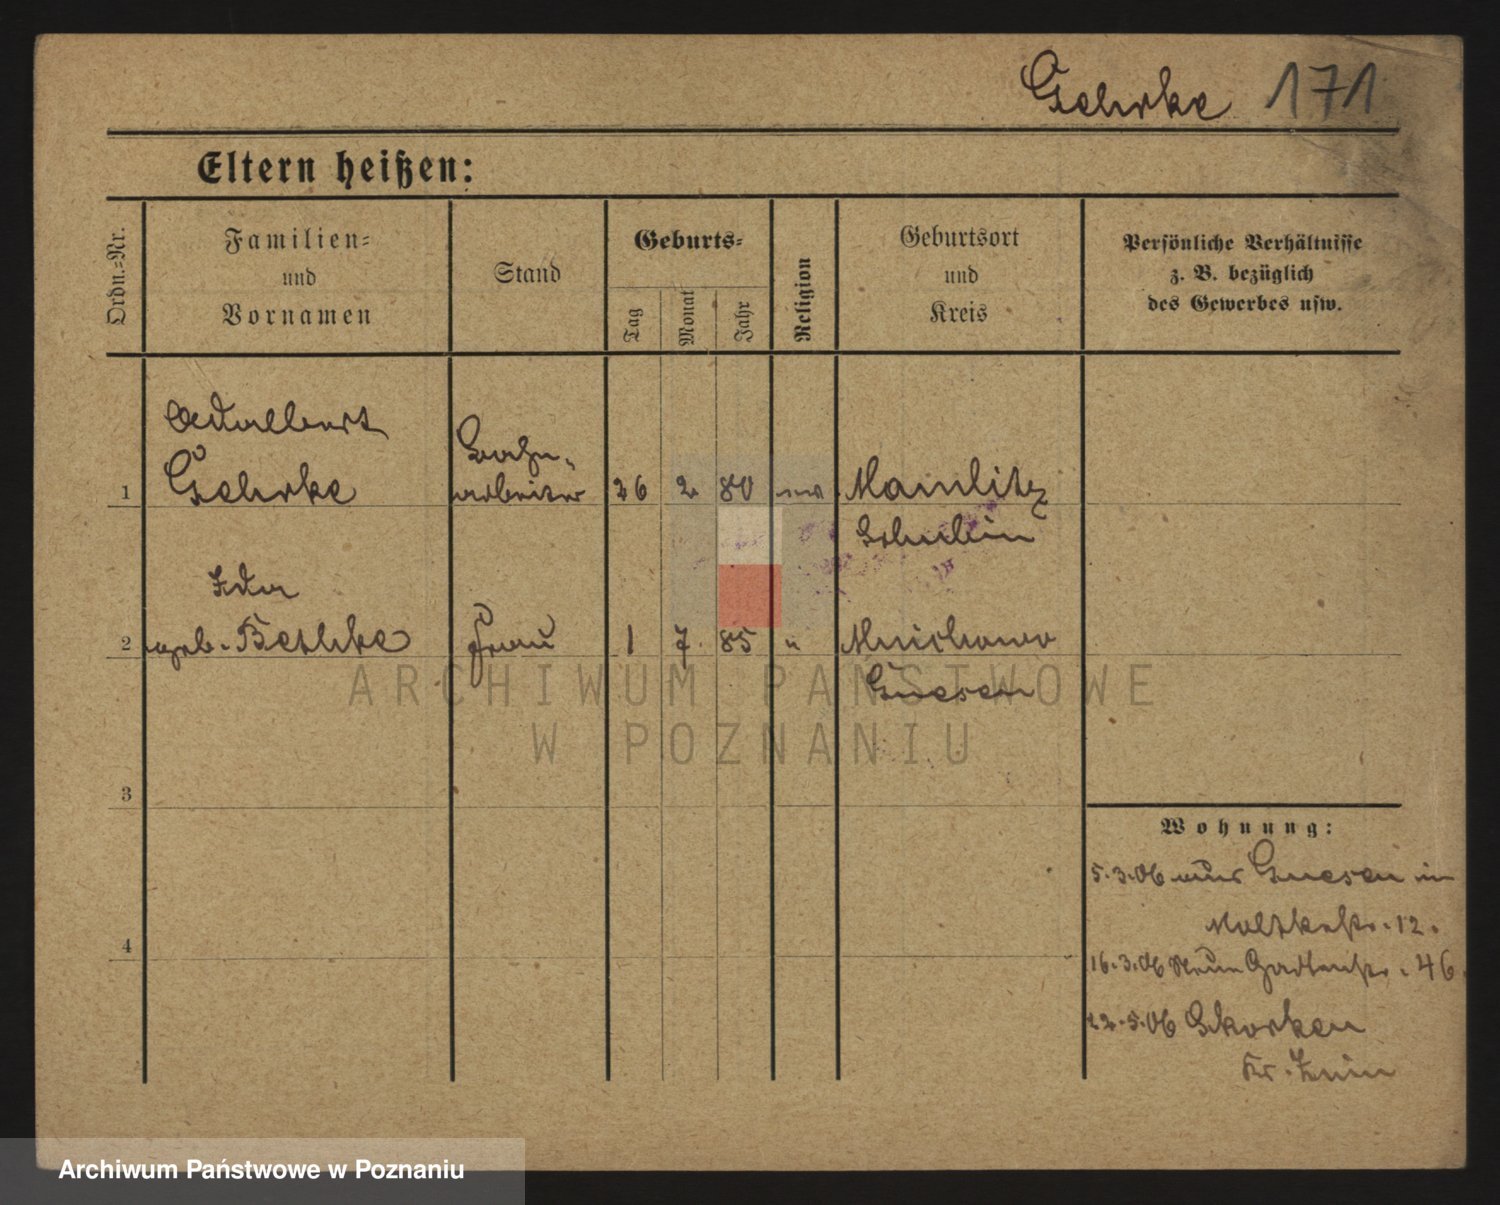 Gehrke 171
Eltern heißen:
Ordn.=Nr.
Familien=
und
Vornamen
Stand
Geburts=
Tag
Monat
Jahr
Religion
Geburtsort
und
Kreis
Persönliche Verhältnisse
z. B. bezüglich
des Gewerbes usw.
Adalbert
1 Gehrke
Bahn-
arbeiter
26 2. 80 Mamlitz
Schubin
Ida
2 geb. Bethke Frau 1 7. 85 " Mnichowo
Gnesen
3
4
Wohnung:
5.3.06 aus Gnesen in
Moltkestr. 12.
16.3.06 Neue 46
22.5.06 Skorken
Kr. Znin
ARCHIWUM PAŃSTWOWE
W POZNANIU
Archiwum Państwowe w Poznaniu